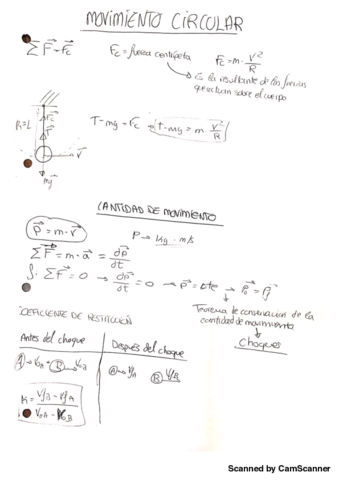 MOVIMIENTO CIRCULAR
ΣF⃗ = F⃗c
Fc = fuerza centrípeta
Fc = m · v²/R
Es la resultante de las fuerzas
que actúan sobre el cuerpo
R = L
T - mg = Fc → T - mg = m · v²/R
v⃗
mg⃗
CANTIDAD DE MOVIMIENTO
p⃗ = m · v⃗
P → Kg · m/s
ΣF⃗ = m · a⃗ = dp⃗/dt
Si ΣF⃗ = 0 → dp⃗/dt = 0 → p⃗ = cte → p⃗₀ = p⃗f
Teorema de conservación de la
cantidad de movimiento
Choques
COEFICIENTE DE RESTITUCIÓN
Antes del choque
Después del choque
A → V₀A B → V₀B
A → VfA B VfB
K = (VfB - VfA) / (V₀A - V₀B)
Scanned by CamScanner